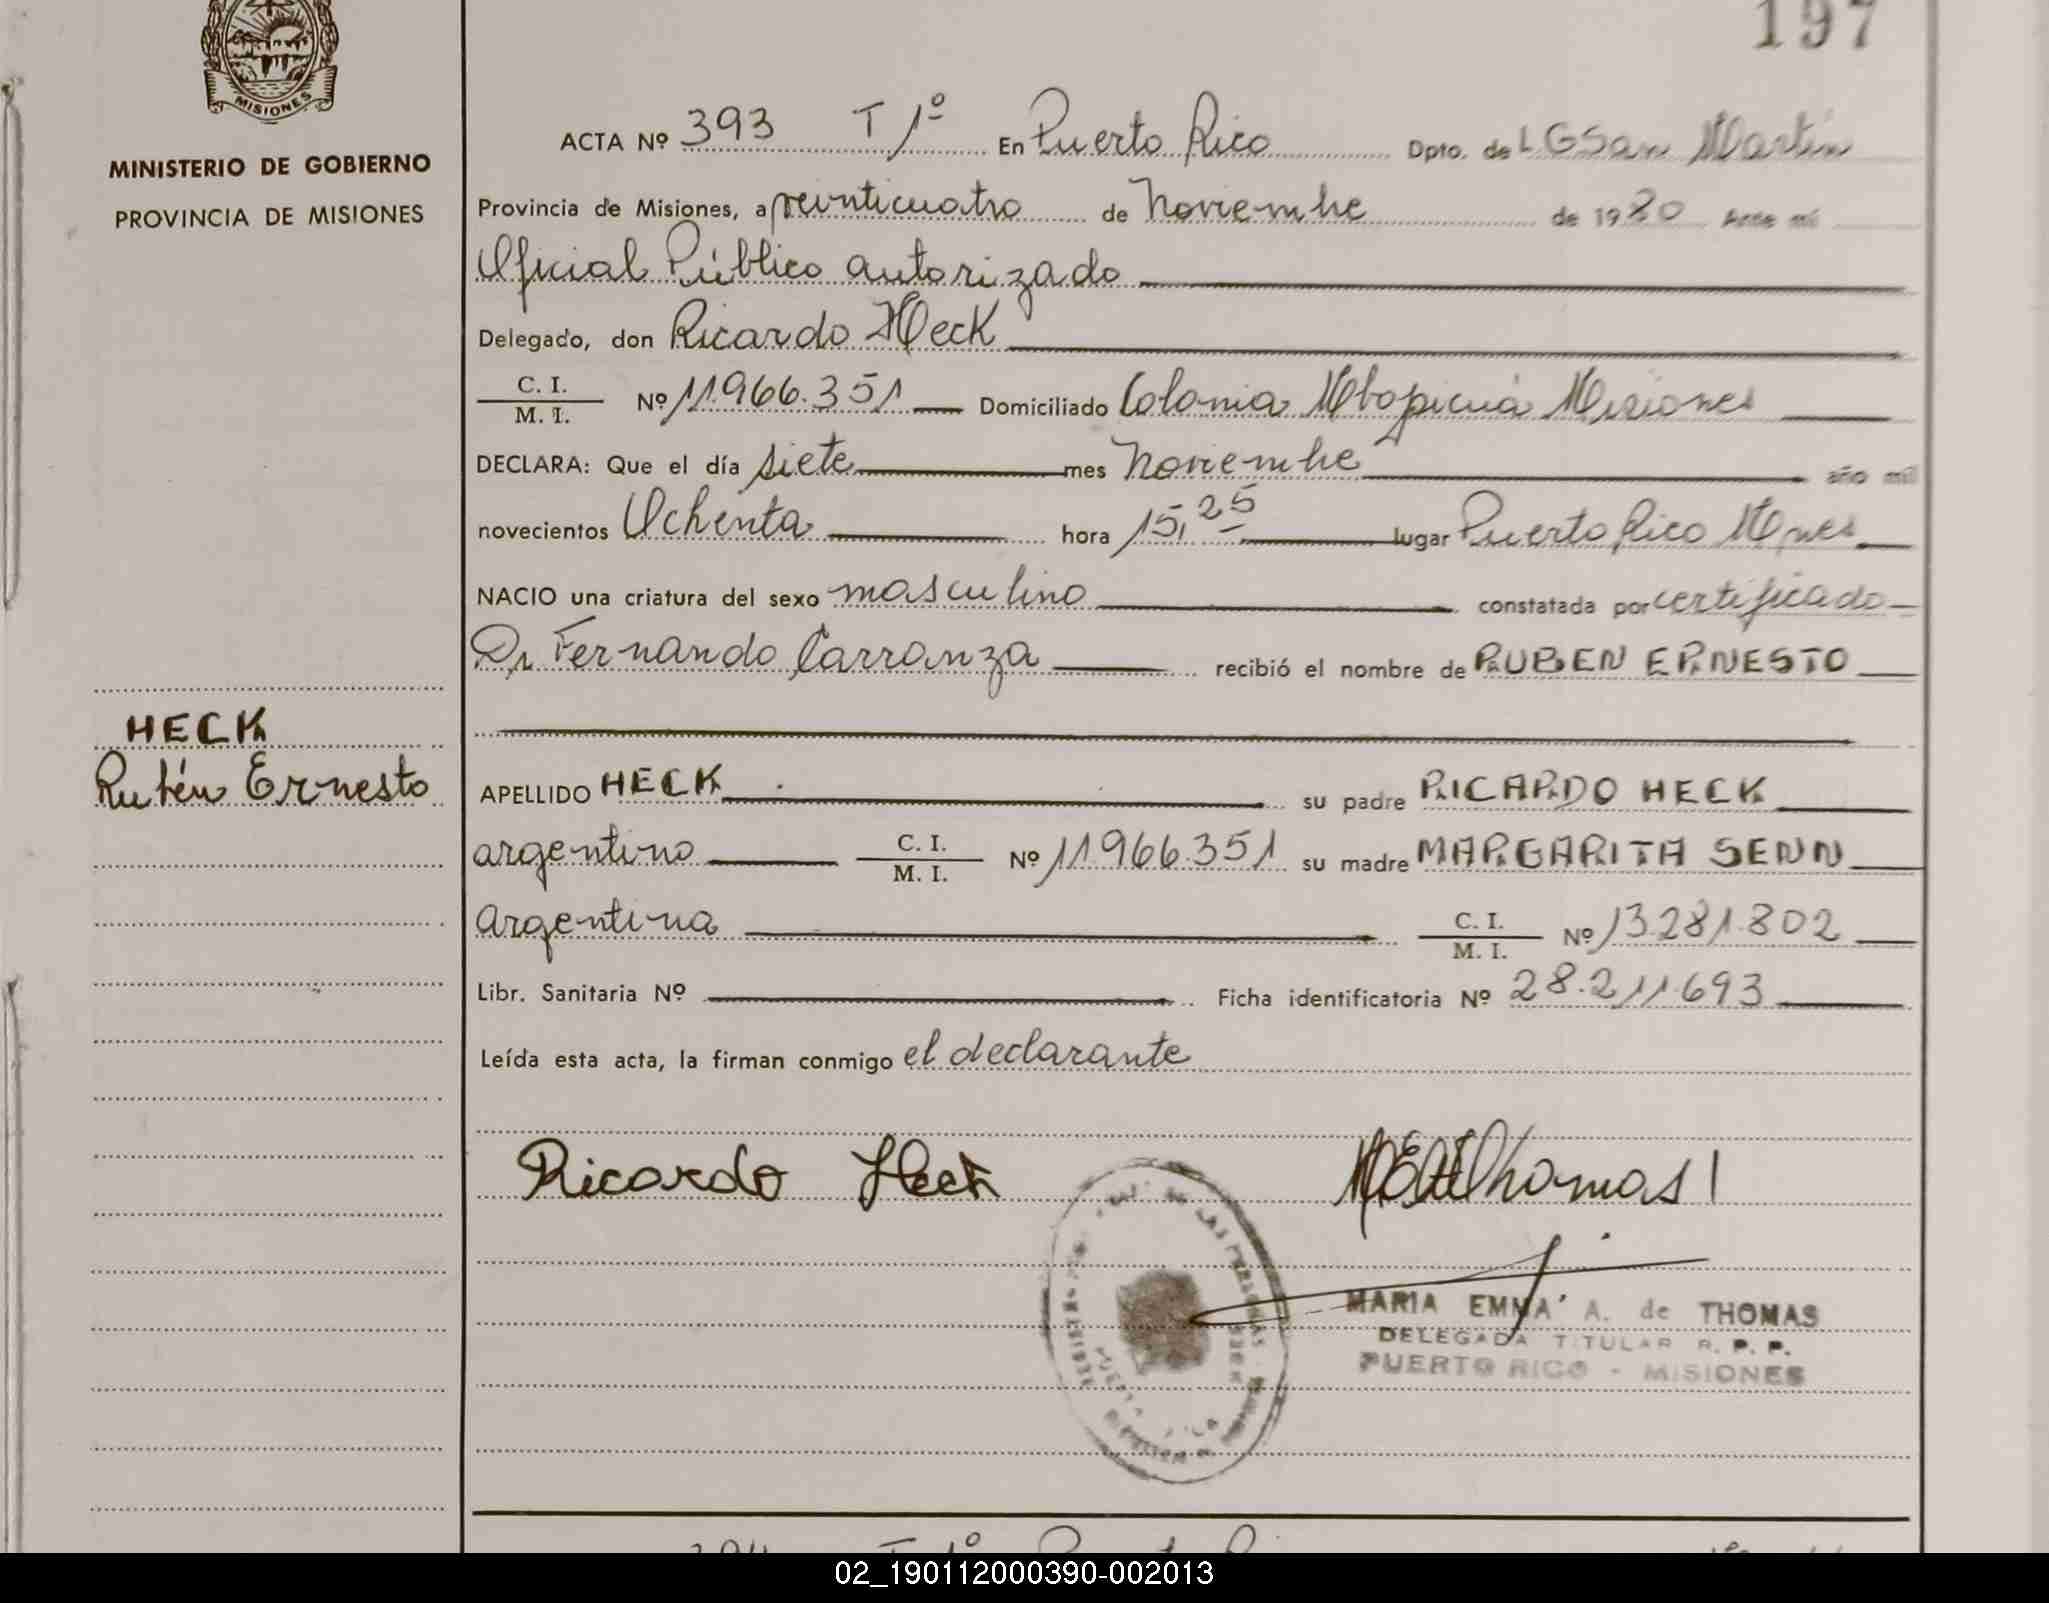 197
MISIONES
MINISTERIO DE GOBIERNO
PROVINCIA DE MISIONES
ACTA Nº 393 T 1º En Puerto Rico Dpto. de L G San Martín
Provincia de Misiones, a veinticuatro de Noviembre de 1980 Ante mí
Oficial Público autorizado
Delegado, don Ricardo Heck
C. I.
M. I. Nº 11.966.351 Domiciliado Colonia Mbopicuá Misiones
DECLARA: Que el día siete mes Noviembre año mil
novecientos Ochenta hora 15,25 lugar Puerto Rico Mnes
NACIO una criatura del sexo masculino constatada por certificado
Dr Fernando Carranza recibió el nombre de RUBEN ERNESTO
HECK
Rubén Ernesto
APELLIDO HECK su padre RICARDO HECK
argentino C. I.
M. I. Nº 11.966.351 su madre MARGARITA SENN
argentina C. I.
M. I. Nº 13.281.802
Libr. Sanitaria Nº Ficha identificatoria Nº 28.211.693
Leída esta acta, la firman conmigo el declarante
Ricardo Heck
Thomas
MARIA EMMA A. de THOMAS
DELEGADA TITULAR R. P. P.
PUERTO RICO - MISIONES
02_190112000390-002013